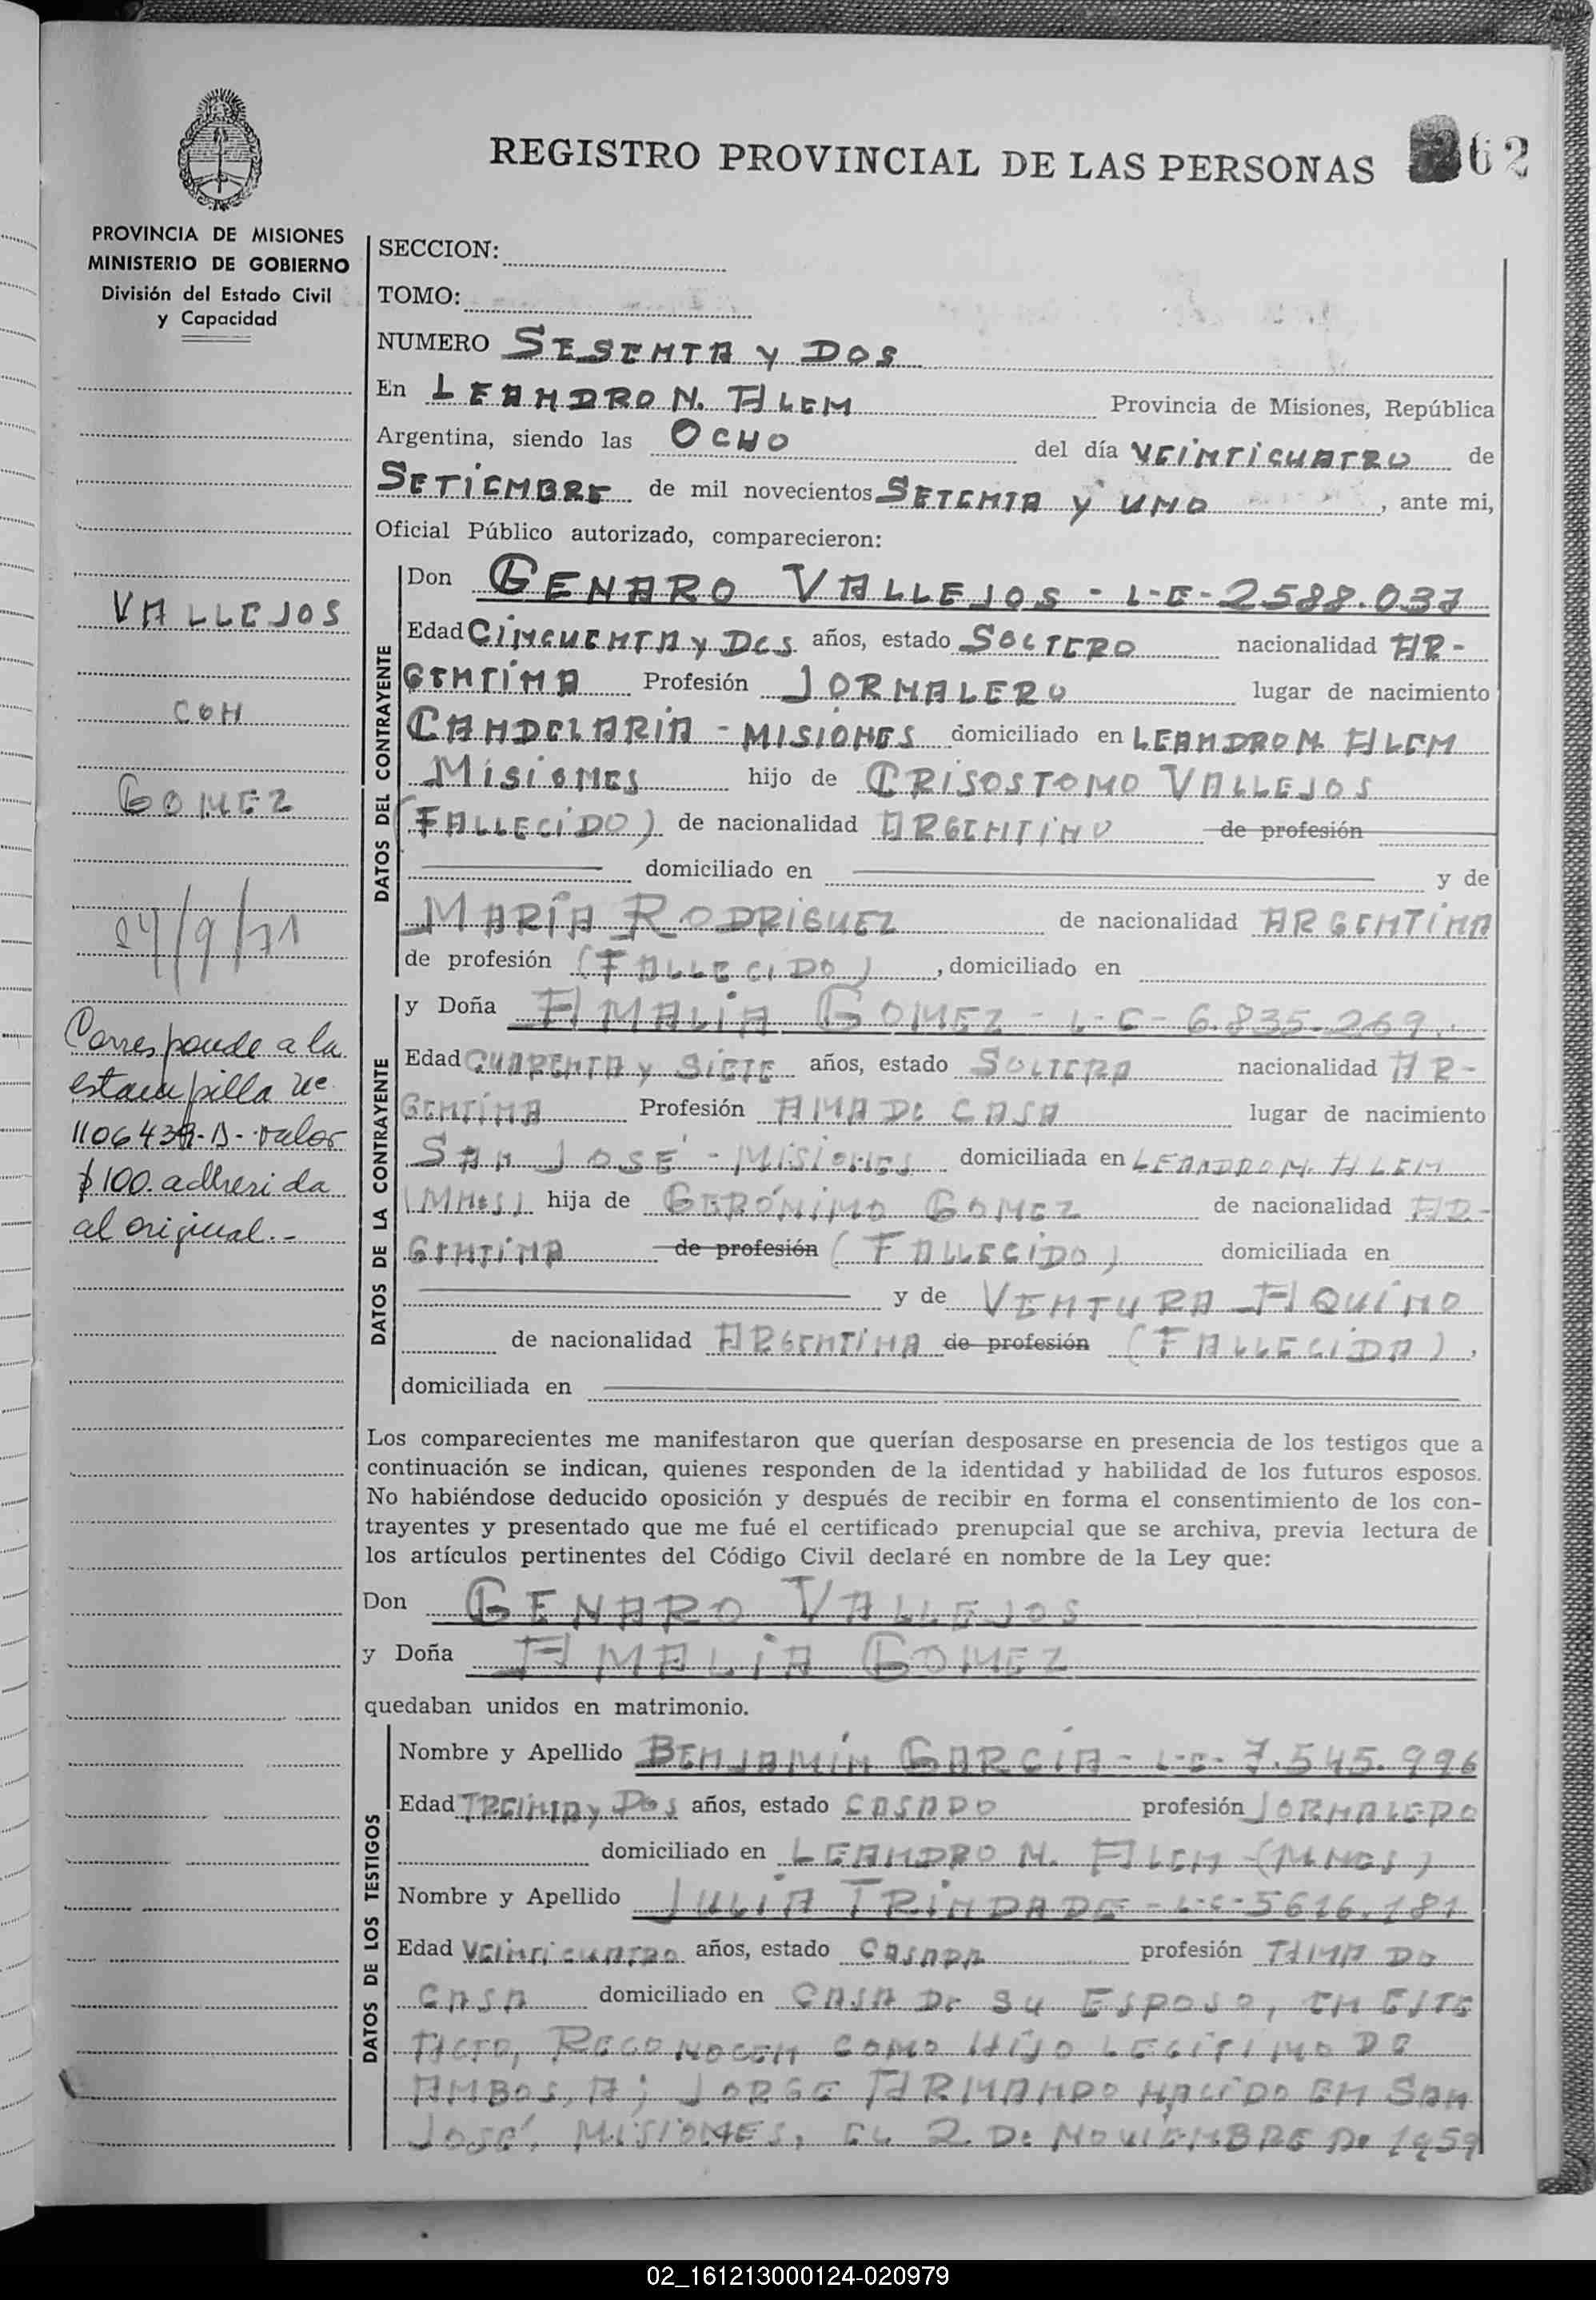 REGISTRO PROVINCIAL DE LAS PERSONAS
62
PROVINCIA DE MISIONES
MINISTERIO DE GOBIERNO
División del Estado Civil
y Capacidad
VALLEJOS
CON
GOMEZ
24/9/71
Corresponde a la
estampilla Nº
adherida
al original.-
SECCION:
TOMO:
NUMERO SESENTA y DOS
En LEANDRO N. ALEM Provincia de Misiones, República
Argentina, siendo las OCHO del día VEINTICUATRO de
SETIEMBRE de mil novecientos SETENTA y UNO, ante mi,
Oficial Público autorizado, comparecieron:
DATOS DEL CONTRAYENTE
Don GENARO VALLEJOS - L-E-2588.037
Edad CINCUENTA y DOS años, estado SOLTERO nacionalidad AR-
GENTINA Profesión JORNALERO lugar de nacimiento
CANDELARIA - MISIONES domiciliado en LEANDRO N. ALEM
MISIONES hijo de CRISOSTOMO VALLEJOS
(FALLECIDO) de nacionalidad ARGENTINO de profesión
domiciliado en y de
MARÍA RODRIGUEZ de nacionalidad ARGENTINA
de profesión (FALLECIDO), domiciliado en
DATOS DE LA CONTRAYENTE
y Doña AMALIA GOMEZ - L-C-6.835.269.
Edad CUARENTA y SIETE años, estado SOLTERA nacionalidad AR-
GENTINA Profesión AMA DE CASA lugar de nacimiento
SAN JOSÉ - MISIONES domiciliada en LEANDRO N. ALEM
(MNES) hija de GERÓNIMO GOMEZ de nacionalidad AR-
GENTINA de profesión (FALLECIDO) domiciliada en
y de VENTURA AQUINO
de nacionalidad ARGENTINA de profesión (FALLECIDA),
domiciliada en
Los comparecientes me manifestaron que querían desposarse en presencia de los testigos que a
continuación se indican, quienes responden de la identidad y habilidad de los futuros esposos.
No habiéndose deducido oposición y después de recibir en forma el consentimiento de los con-
trayentes y presentado que me fué el certificado prenupcial que se archiva, previa lectura de
los artículos pertinentes del Código Civil declaré en nombre de la Ley que:
Don GENARO VALLEJOS
y Doña AMALIA GOMEZ
quedaban unidos en matrimonio.
DATOS DE LOS TESTIGOS
Nombre y Apellido BENJAMÍN GARCÍA - L-E-7.545.996
Edad TREINTA y DOS años, estado CASADO profesión JORNALERO
domiciliado en LEANDRO N. ALEM - (MNES)
Nombre y Apellido JULIA TRINDADE - L-C-5616.181
Edad VEINTICUATRO años, estado CASADA profesión AMA DE
CASA domiciliado en CASA DE SU ESPOSO, EN ESTE
ACTO, RECONOCEN COMO HIJO LEGITIMO DE
AMBOS, A; JORGE ARMANDO NACIDO EN SAN
JOSÉ, MISIONES, EL 2 DE NOVIEMBRE DE 1959
$100.
02_161213000124-020979